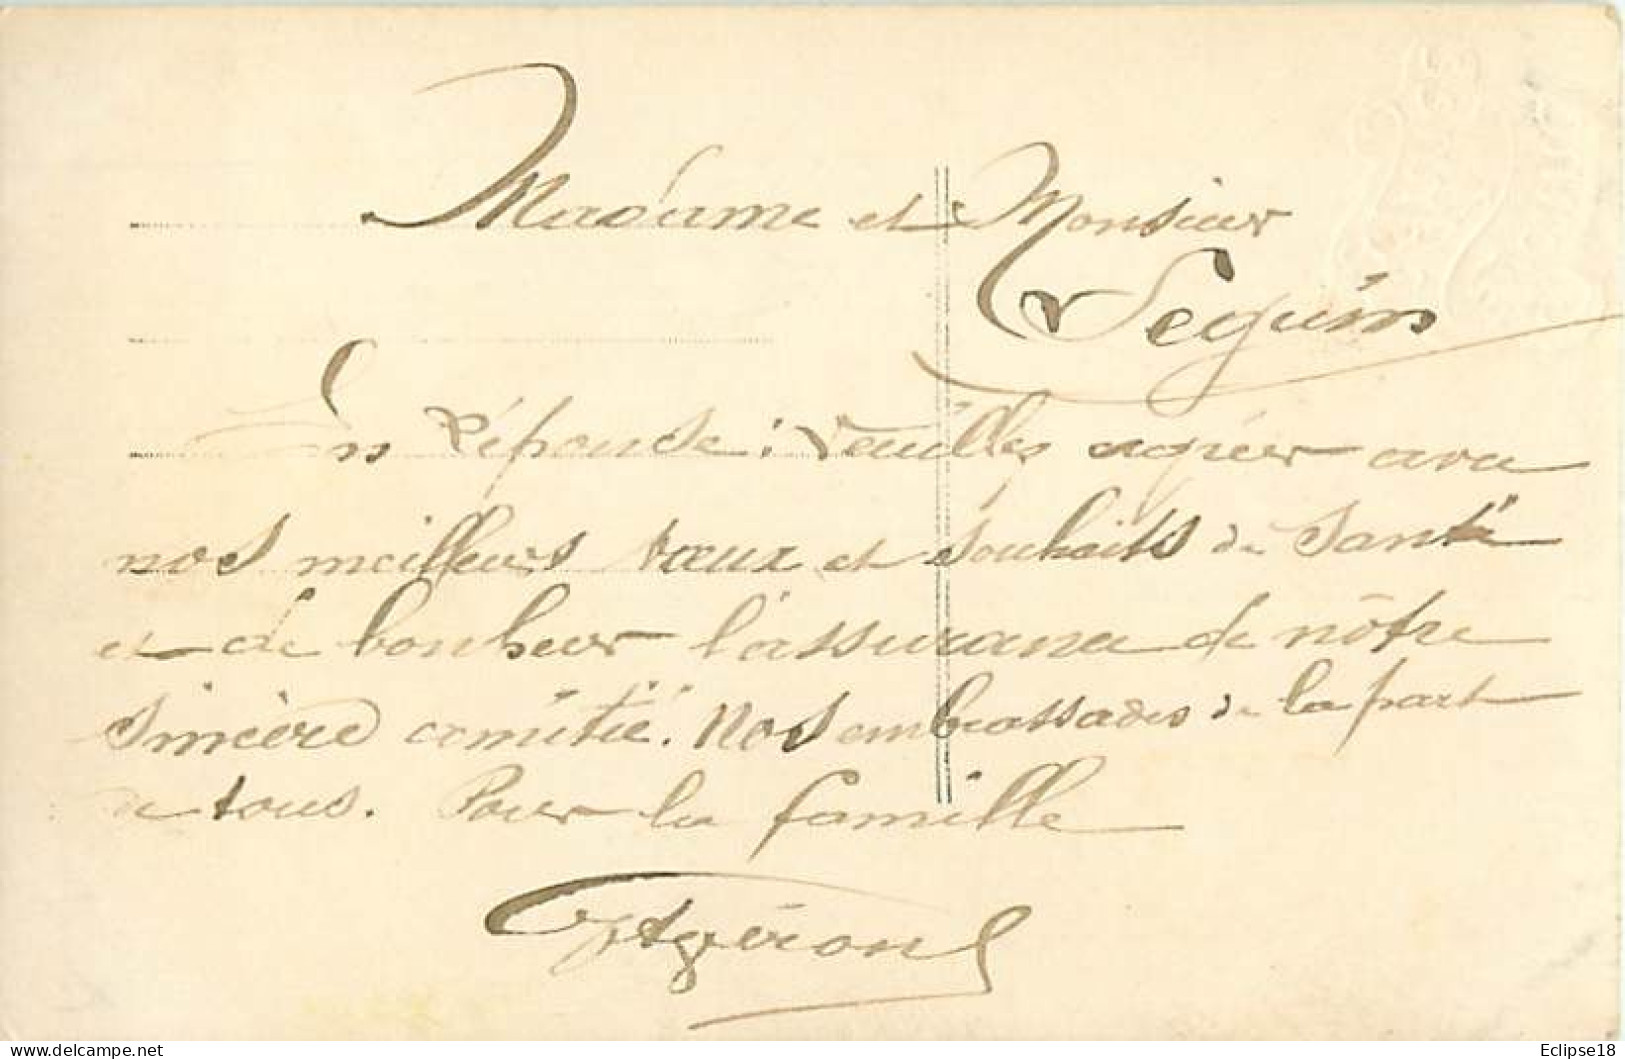 Madame et Monsieur
Seguin
En réponse : Veuillez agréer avec
nos meilleurs vœux et souhaits de Santé
et de bonheur l'assurance de nôtre
sincère amitié. Nos embrassades de la part
de tous. Pour la famille
Eclipse18
© delcampe.net